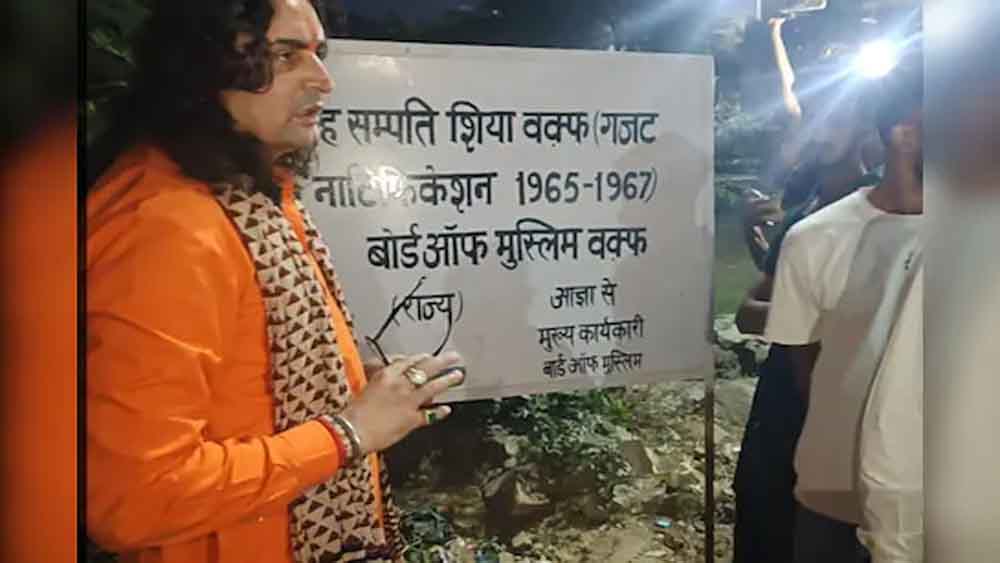 सम्पति शिया वक़्फ (गजट
नोटिफिकेशन 1965-1967)
बोर्ड ऑफ मुस्लिम वक़्फ
(राज्य)
आज्ञा से
मुख्य कार्यकारी
बोर्ड ऑफ मुस्लिम